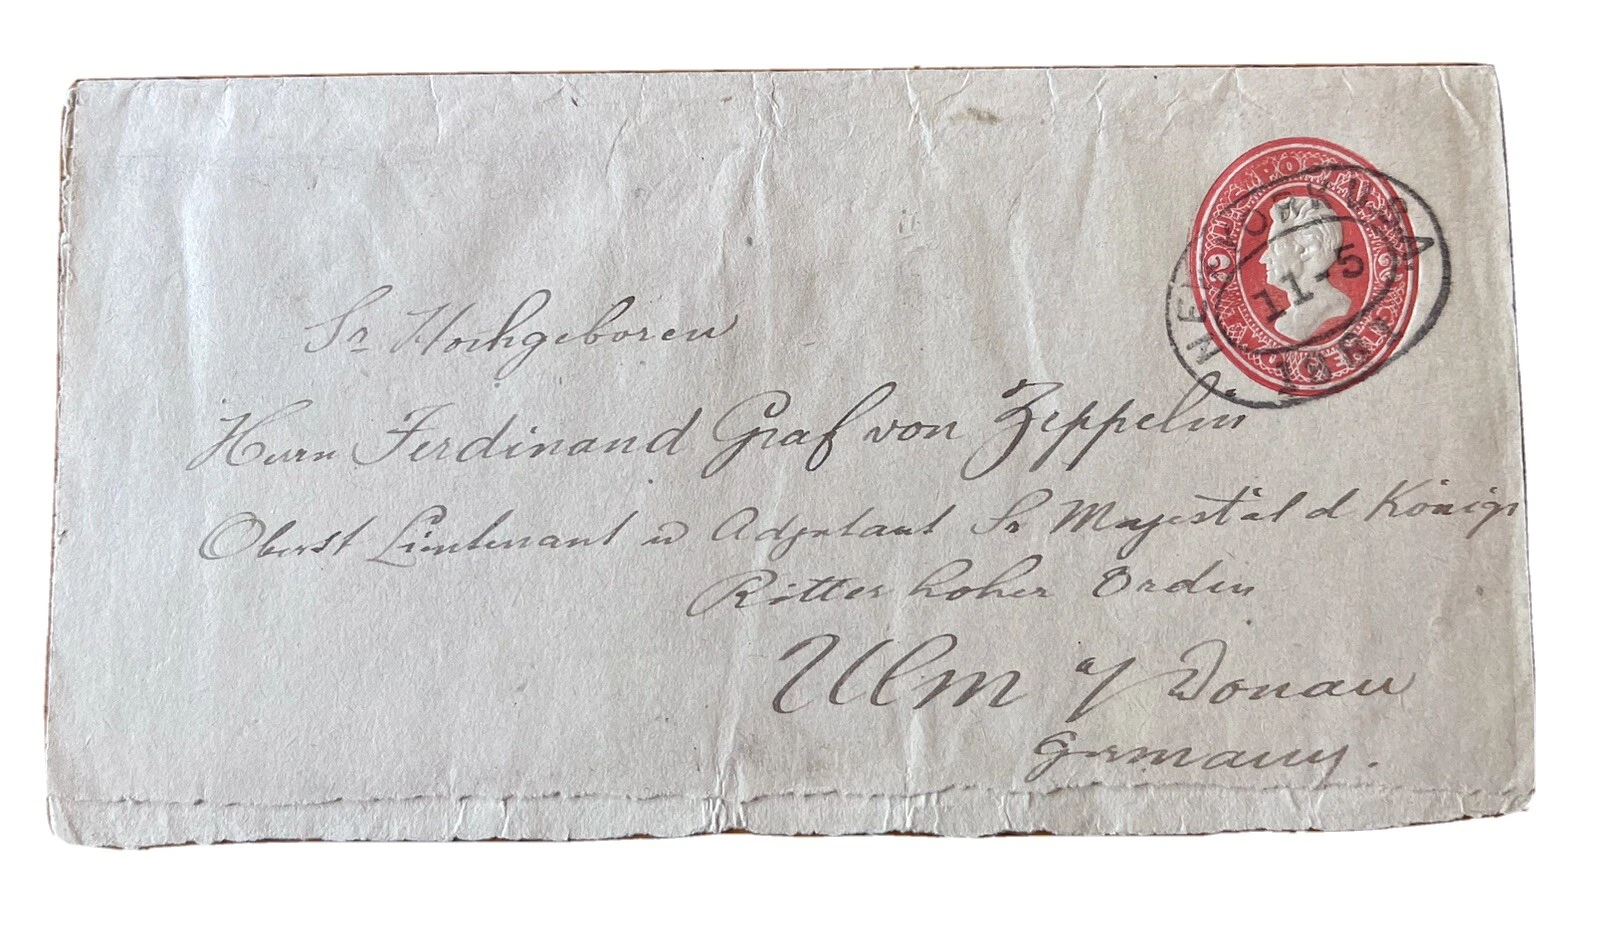 U.S. POSTAGE
2 2
TWO CENTS
NEW YORK U.S.A
11-5
Sr Hochgeboren
Herrn Ferdinand Graf von Zeppelin
Oberst Lieutenant u Adjutant Sr Majestät d Königs
Ritter hoher Orden
Ulm a/ Donau
Germany.